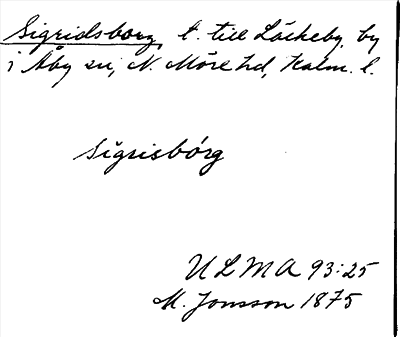 Sigridsborg, t. till Läckeby, by
i Åby sn, N. Möre hd, Kalm. l.
Sigrisbórg
ULMA 93:25
M. Jonsson 1875